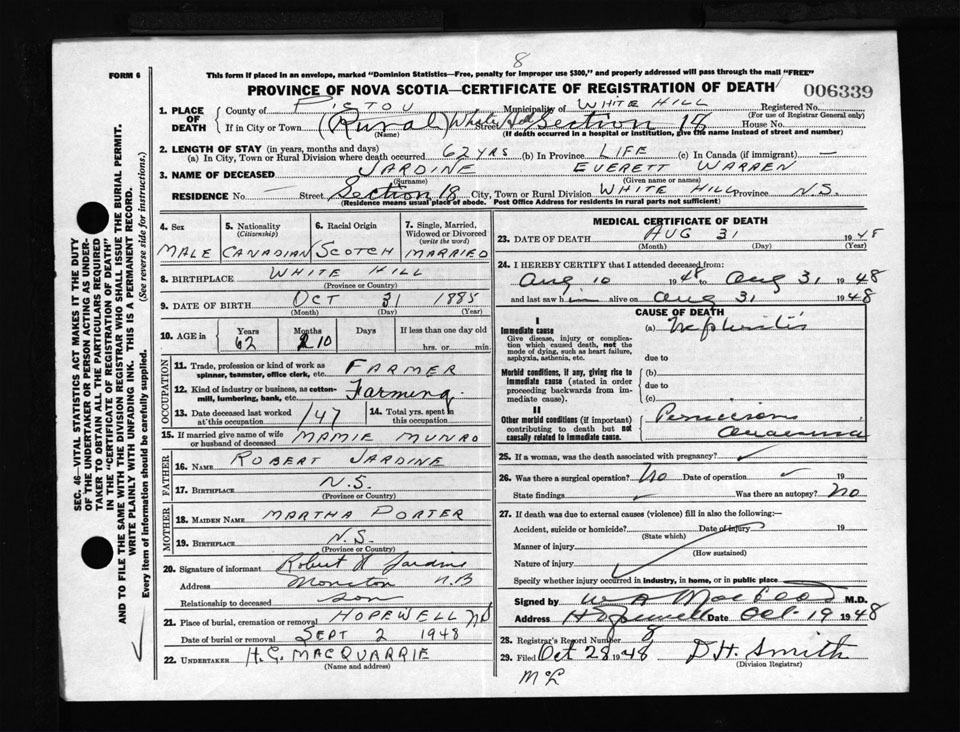 8
FORM 6
This form if placed in an envelope, marked "Dominion Statistics—Free, penalty for improper use $300," and properly addressed will pass through the mail "FREE"
PROVINCE OF NOVA SCOTIA—CERTIFICATE OF REGISTRATION OF DEATH
006339
1. PLACE OF DEATH
County of PICTOU Municipality of WHITE HILL Registered No.
(For use of Registrar General only)
If in City or Town (Rural) White Hill Street Section 18 House No.
(Name) (If death occurred in a hospital or institution, give the name instead of street and number)
2. LENGTH OF STAY (in years, months and days)
(a) In City, Town or Rural Division where death occurred 62 YRS (b) In Province LIFE (c) In Canada (if immigrant) —
3. NAME OF DECEASED JARDINE EVERETT WARREN
(Surname) (Given name or names)
RESIDENCE No. Street Section 18 City, Town or Rural Division WHITE HILL Province N.S.
(Residence means usual place of abode. Post Office Address for residents in rural parts not sufficient)
4. Sex 5. Nationality (Citizenship) 6. Racial Origin 7. Single, Married, Widowed or Divorced (write the word)
MALE CANADIAN SCOTCH MARRIED
8. BIRTHPLACE WHITE HILL
(Province or Country)
9. DATE OF BIRTH OCT 31 1885
(Month) (Day) (Year)
10. AGE in Years Months Days If less than one day old
62 10 hrs. or min.
OCCUPATION
11. Trade, profession or kind of work as spinner, teamster, office clerk, etc. FARMER
12. Kind of industry or business, as cotton-mill, lumbering, bank, etc. Farming
13. Date deceased last worked at this occupation 1/47 14. Total yrs. spent in this occupation
15. If married give name of wife or husband of deceased MAMIE MUNRO
FATHER
16. NAME ROBERT JARDINE
17. BIRTHPLACE N.S.
(Province or Country)
MOTHER
18. MAIDEN NAME MARTHA PORTER
19. BIRTHPLACE N.S.
(Province or Country)
20. Signature of informant Robert Jardine
Address Moncton N.B
Relationship to deceased son
21. Place of burial, cremation or removal HOPEWELL
Date of burial or removal SEPT 2 1948
22. UNDERTAKER H.G. MACQUARRIE
(Name and address)
MEDICAL CERTIFICATE OF DEATH
23. DATE OF DEATH AUG 31 1948
(Month) (Day) (Year)
24. I HEREBY CERTIFY that I attended deceased from:
Aug 10 1948 to Aug 31 1948
and last saw him alive on Aug 31 1948
CAUSE OF DEATH
I
Immediate cause (a) Nephritis
Give disease, injury or complication which caused death, not the mode of dying, such as heart failure, asphyxia, asthenia, etc. due to
Morbid conditions, if any, giving rise to immediate cause (stated in order proceeding backwards from immediate cause). (b)
due to
(c)
II
Other morbid conditions (if important) contributing to death but not causally related to immediate cause. Pernicious Anaemia
25. If a woman, was the death associated with pregnancy?
26. Was there a surgical operation? No Date of operation 19
State findings Was there an autopsy? No
27. If death was due to external causes (violence) fill in also the following:—
Accident, suicide or homicide? Date of injury 19
(State which)
Manner of injury
(How sustained)
Nature of injury
Specify whether injury occurred in industry, in home, or in public place
Signed by W A MacLeod M.D.
Address Hopewell Date Oct. 19 1948
28. Registrar's Record Number 8
29. Filed Oct 28 1948 D.H. Smith
(Division Registrar)
McL
SEC. 46—VITAL STATISTICS ACT MAKES IT THE DUTY
OF THE UNDERTAKER OR PERSON ACTING AS UNDER-
TAKER TO OBTAIN ALL THE PARTICULARS REQUIRED
IN THE "CERTIFICATE OF REGISTRATION OF DEATH"
AND TO FILE THE SAME WITH THE DIVISION REGISTRAR WHO SHALL ISSUE THE BURIAL PERMIT.
WRITE PLAINLY WITH UNFADING INK. THIS IS A PERMANENT RECORD.
Every item of information should be carefully supplied. (See reverse side for instructions.)